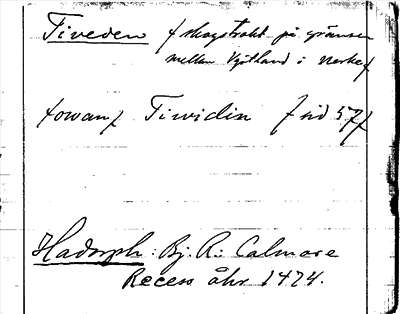 Tiveden /skogstrakt på gränsen
mellan Vgötland i Nerke/
/owan/ Tiwidin /sid 57/
Hadorph: Bj. R.: Calmare
Recess åhr 1474.